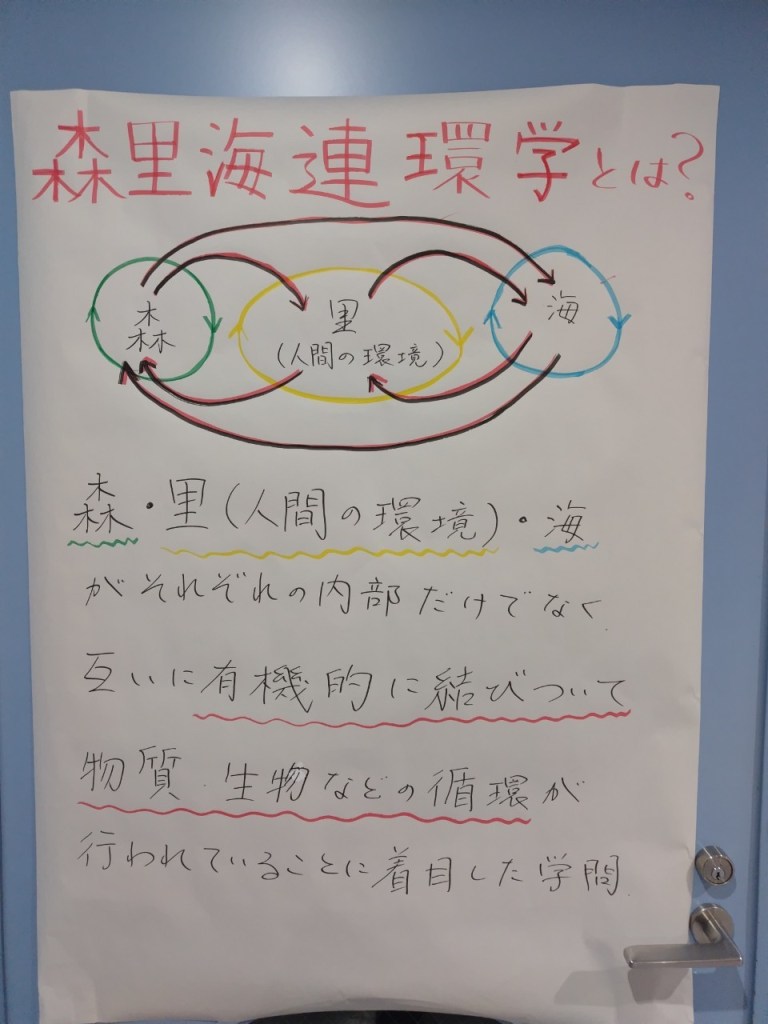 森里海連環学とは?
森
里
(人間の環境)
海
森・里(人間の環境)・海
がそれぞれの内部だけでなく
互いに有機的に結びついて
物質、生物などの循環が
行われていることに着目した学問